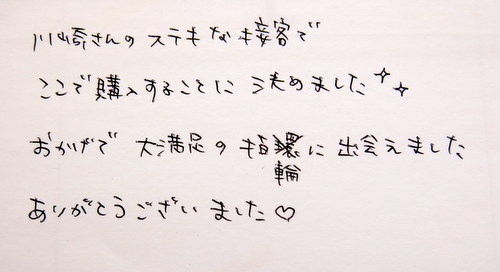 川崎さんのステキな接客で
ここで購入することに決めました✧✧
おかげで大満足の指輪に出会えました
ありがとうございました♡